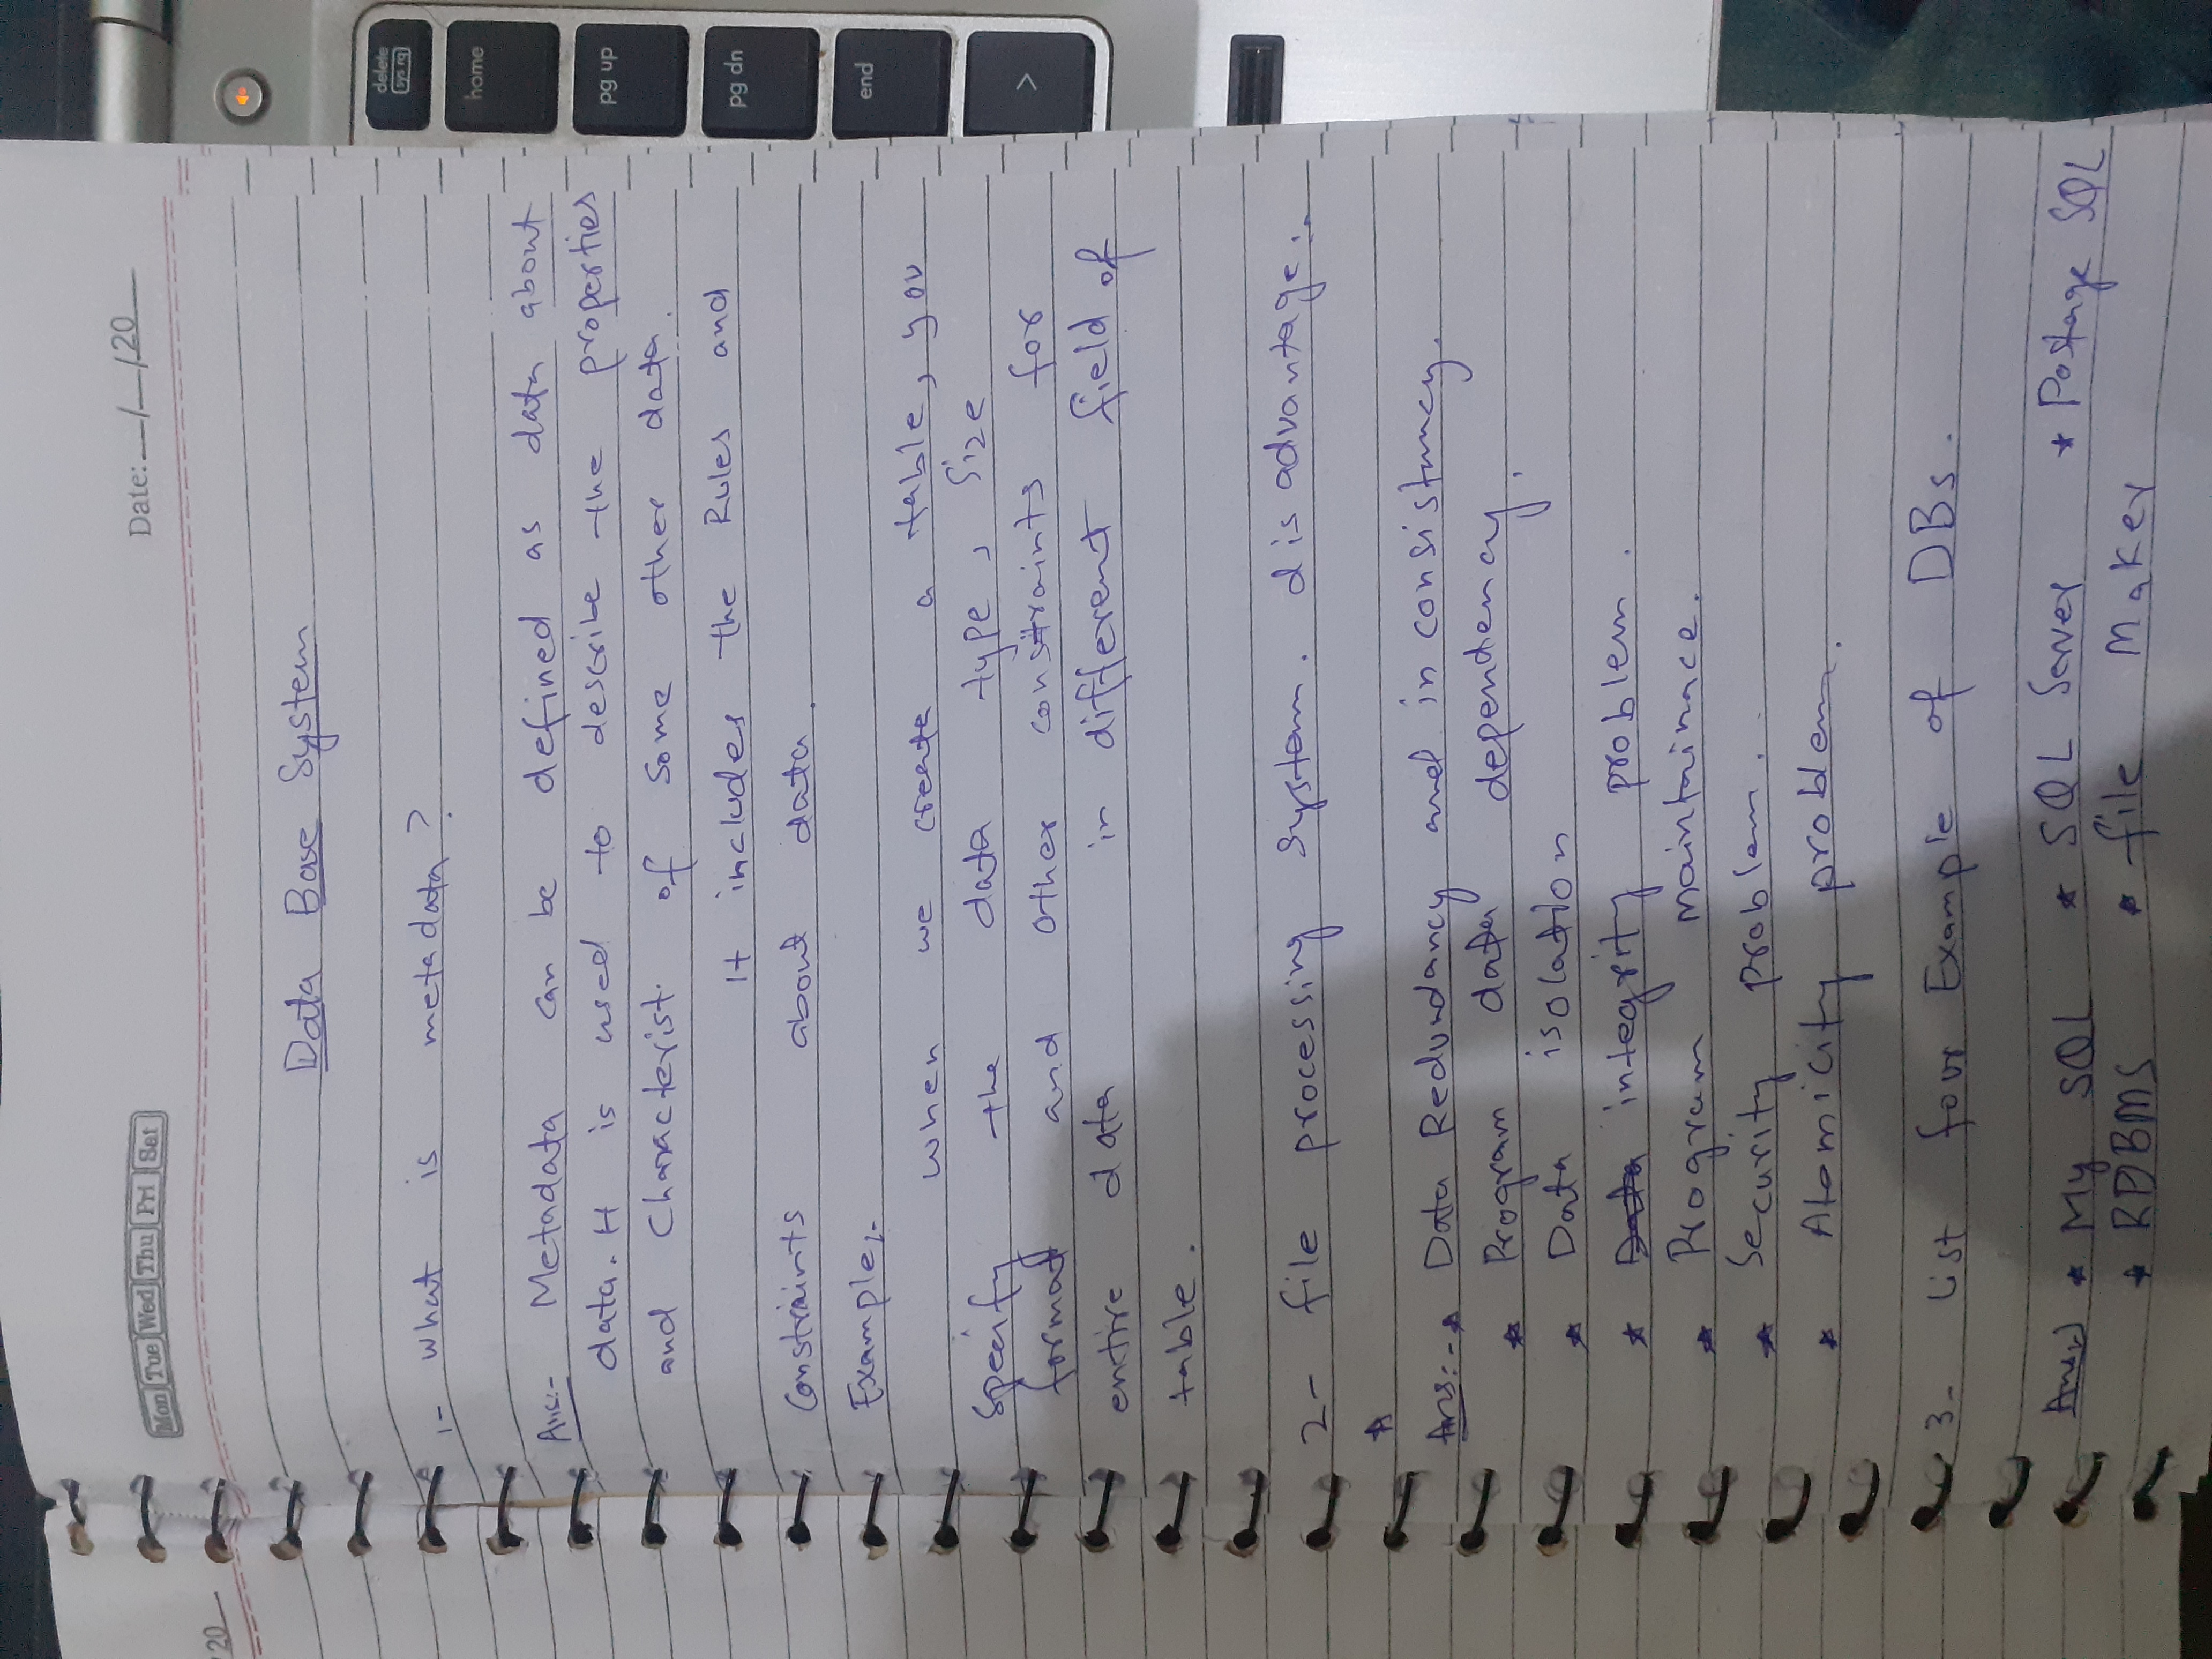 Mon Tue Wed Thu Fri Sat
Date: __/__/20
20
Data Base System
1- What is metadata?
Ans:- Metadata can be defined as data about
data. It is used to describe the properties
and Characterist. of Some other data.
It includes the Rules and
Constraints about data.
Example:-
When we create a table, you
Specify the data type, Size
format and other constraints for
entire data in different field of
table.
2- file processing System. disadvantage:-
Ans:- * Data Redundancy and in consistancy.
* Program data dependency.
* Data isolation
* integrity problem.
* Program Maintainace.
* Security problem.
* Atomicity problem.
3- List four Example of DBs.
Ans) * My SQL * SQL Server * Postage SQL
* RDBMS * file Maker
delete
sys rq
home
pg up
pg dn
end
>